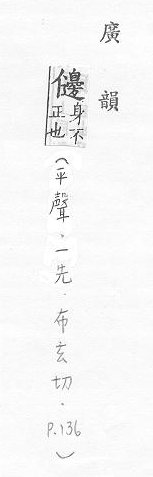 廣韻
𠐈身不正也(平聲.一先.布玄切.P.136)